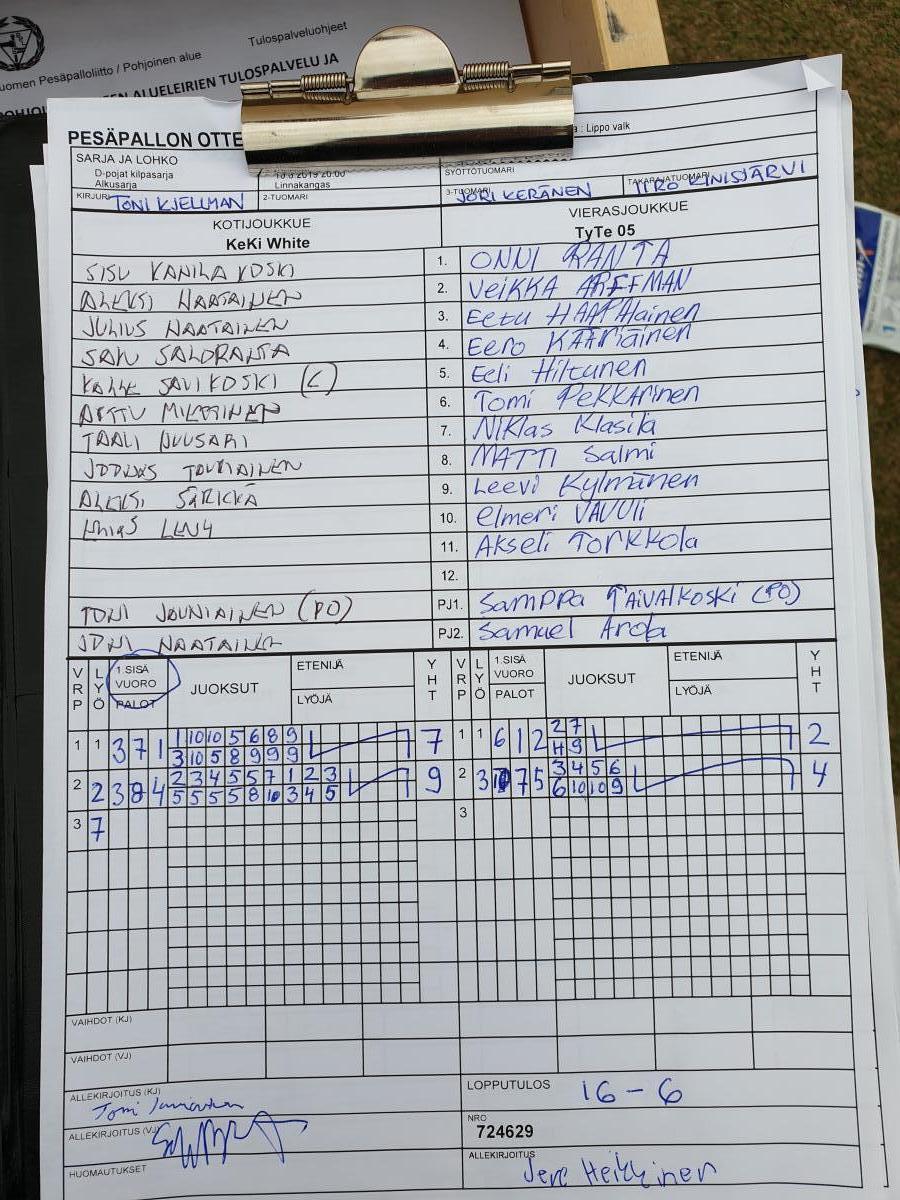 Tulospalveluohjeet
uomen Pesäpalloliitto / Pohjoinen alue
EN ALUELEIRIEN TULOSPALVELU JA
PESÄPALLON OTTE
: Lippo valk
SARJA JA LOHKO
D-pojat kilpasarja
Alkusarja
Linnakangas
SYÖTTÖTUOMARI
KIRJURI TONI KJELLMAN
2-TUOMARI
3-TUOMARI JORI KERÄNEN
TAKARAJATUOMARI IIRO KINISJÄRVI
KOTIJOUKKUE
KeKi White
VIERASJOUKKUE
TyTe 05
SISU VANHA KOSKI 1. ONNI RANTA
ALEKSI NAATAINEN 2. VEIKKA AREFMAN
JULIUS NAATAINEN 3. Eetu HAAPAlainen
SAKU SALORANTA 4. Eero KÄÄRiäinen
KALLE SAVIKOSKI (C) 5. Eeli Hiltunen
6. Tomi PeKKArinen
7. NIKlas Klasila
8. MATTI Salmi
ALEKSI SÄRKKÄ 9. Leevi Kylmänen
10. elmeri VAVULi
11. Akseli TorKKola
12.
TONI JOUNIAINEN (PO) PJ1. Samppa TAiVAlKoski (PO)
JONI NAATAINEN PJ2. Samuel Arola
VRP LYÖ 1.SISÄ VUORO PALOT JUOKSUT ETENIJÄ LYÖJÄ YHT VRP LYÖ 1.SISÄ VUORO PALOT JUOKSUT ETENIJÄ LYÖJÄ YHT
1 1 3 7 1 1 10 10 5 6 8 9 7 1 1 6 1 2 2 7 2
3 10 5 8 9 9 9 4 9
2 2 3 8 4 2 3 4 5 5 7 1 2 3 9 2 3 7 5 3 4 5 6 4
5 5 5 5 8 10 3 4 5 6 10 10 9
3 7 3
VAIHDOT (KJ)
VAIHDOT (VJ)
ALLEKIRJOITUS (KJ)
LOPPUTULOS 16 - 6
ALLEKIRJOITUS (VJ)
NRO
724629
HUOMAUTUKSET
ALLEKIRJOITUS
Jere Heikkinen